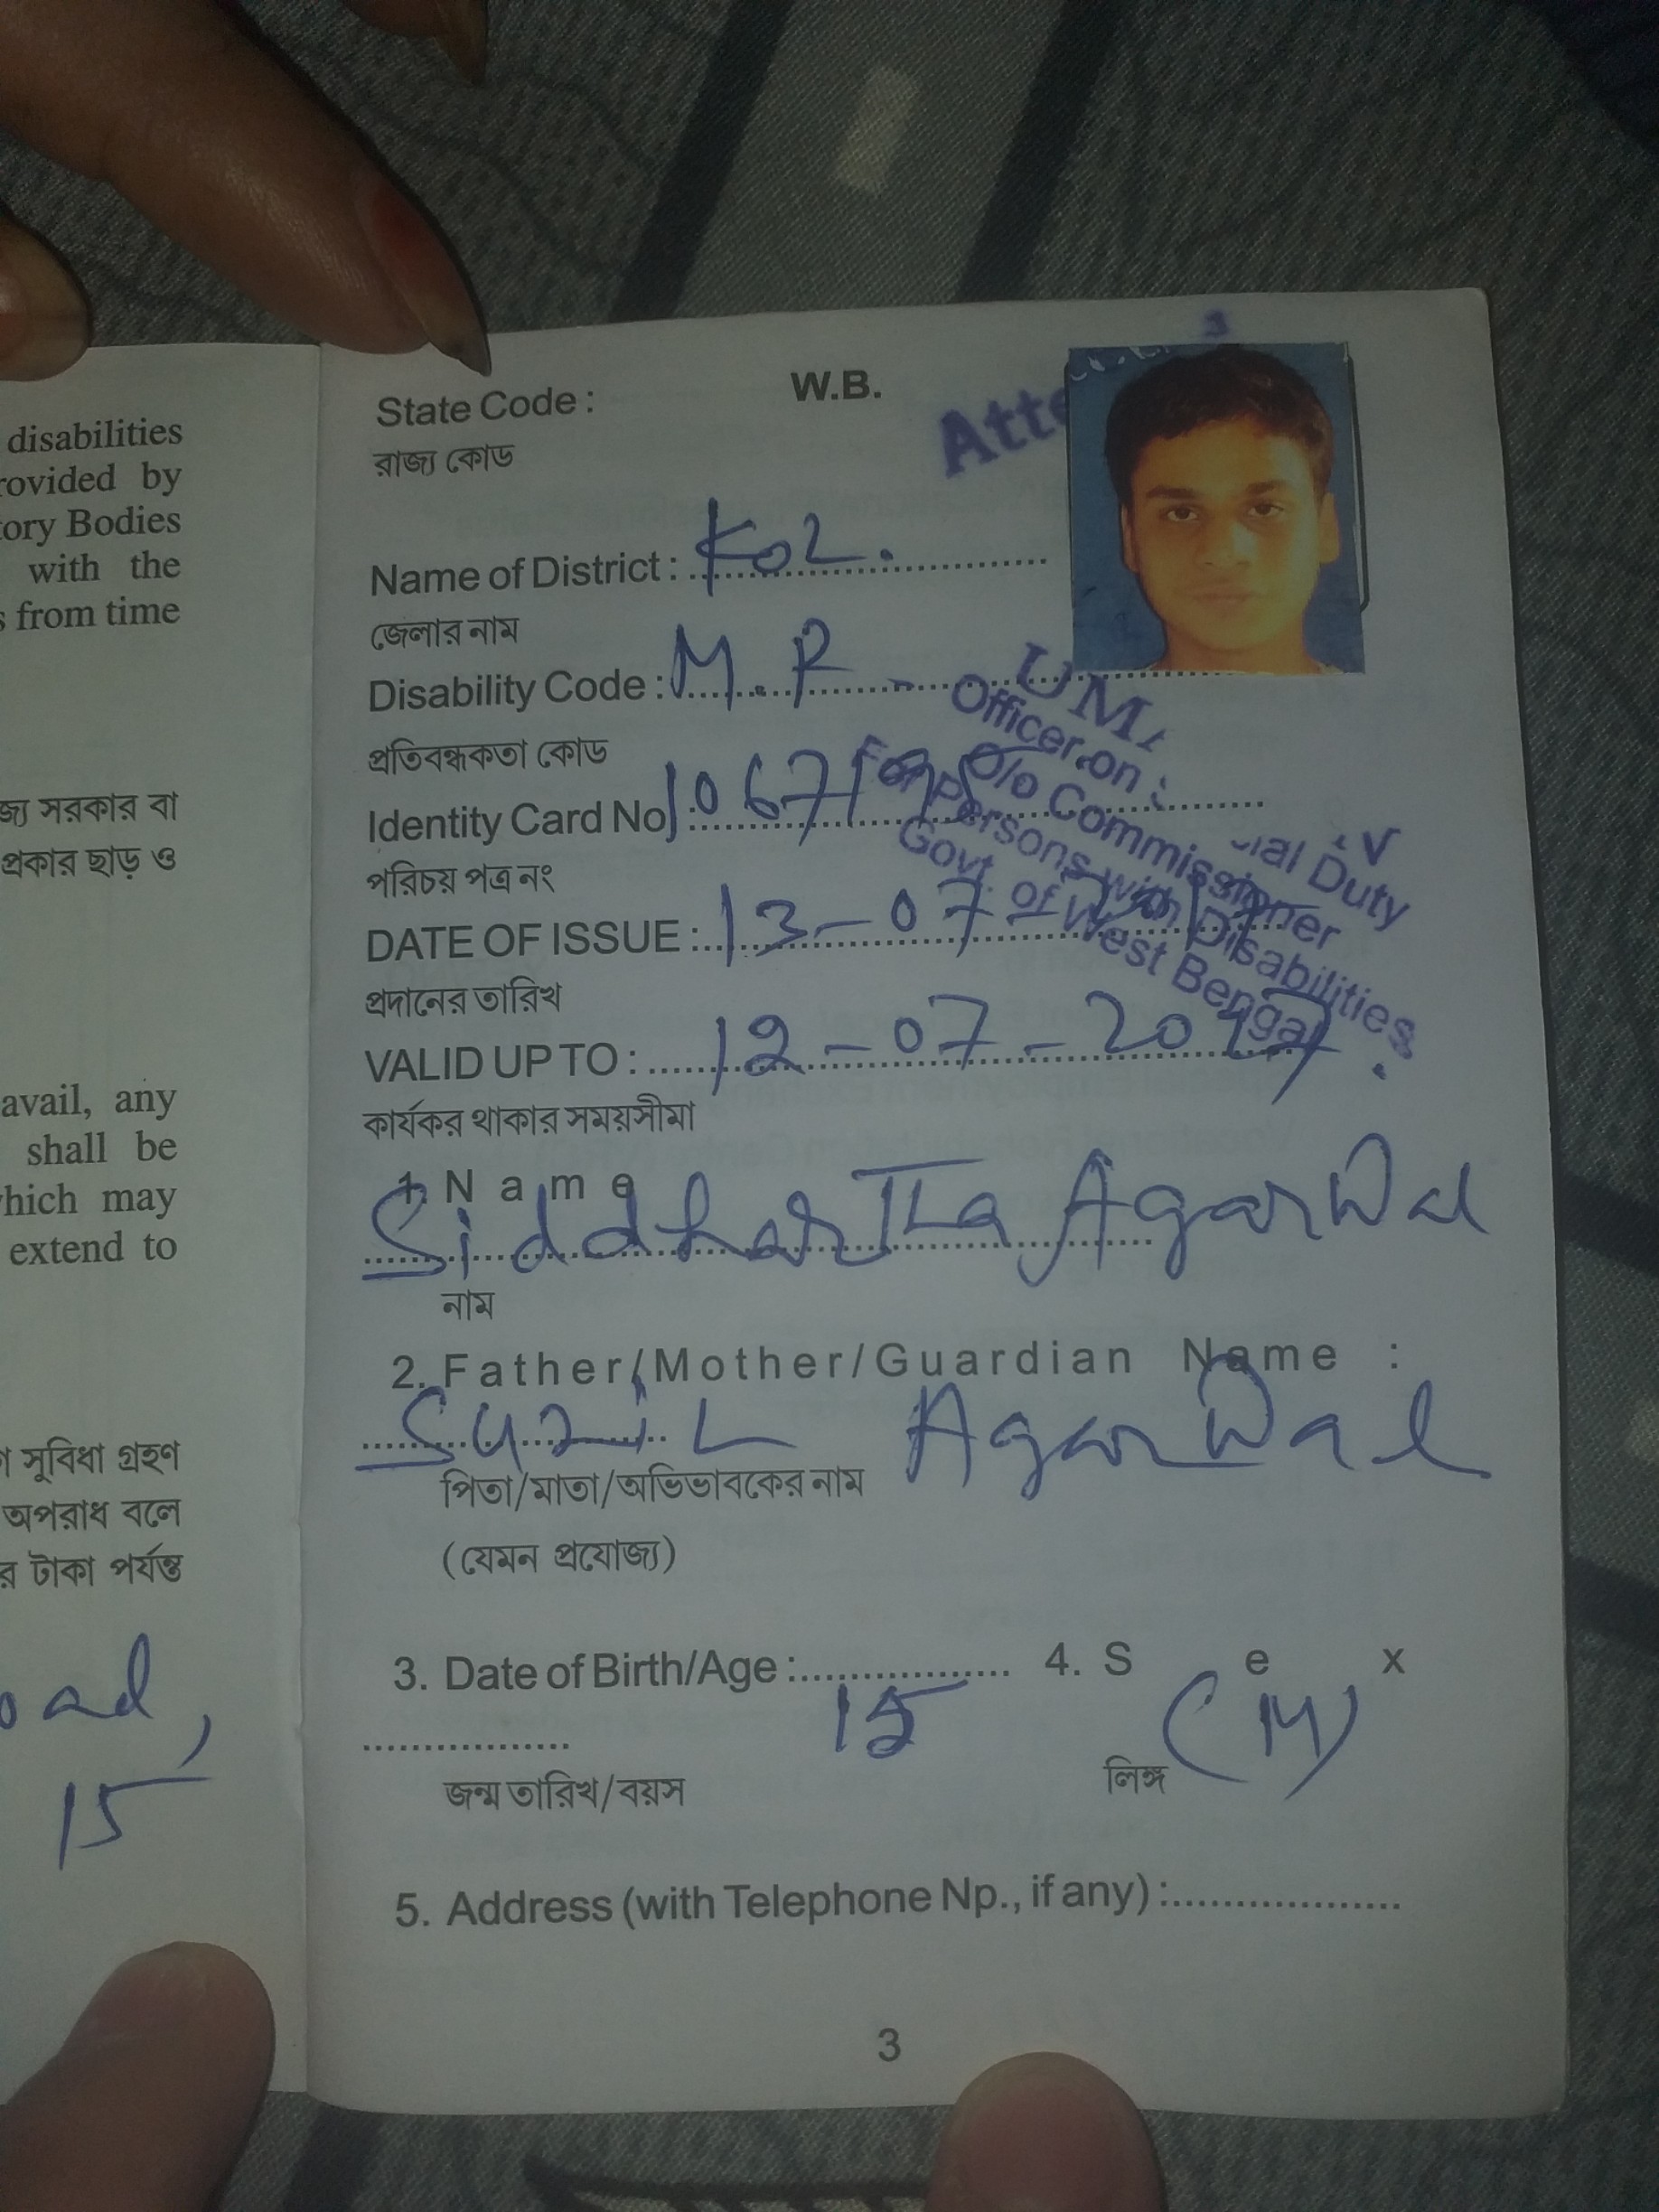 disabilities
rovided by
tory Bodies
with the
s from time
জ্য সরকার বা
প্রকার ছাড় ও
avail, any
shall be
which may
extend to
সুবিধা গ্রহণ
অপরাধ বলে
র টাকা পর্যন্ত
oad,
15
State Code : W.B.
রাজ্য কোড
Atte
Name of District : Kol.
জেলার নাম
Disability Code : M.R -
প্রতিবন্ধকতা কোড
Identity Card No. :
পরিচয় পত্র নং
UMA
Officer on cial Duty
O/o Commissioner
For Persons with Disabilities
Govt. of West Bengal
DATE OF ISSUE : 13-07-
প্রদানের তারিখ
VALID UP TO : 12-07-20
কার্যকর থাকার সময়সীমা
1. Name
Siddhartha Agarwal
নাম
2. Father/Mother/Guardian Name :
Sunil Agarwal
পিতা/মাতা/অভিভাবকের নাম
(যেমন প্রযোজ্য)
3. Date of Birth/Age : 15 4. Sex (M)
জন্ম তারিখ/বয়স লিঙ্গ
5. Address (with Telephone Np., if any) :
3